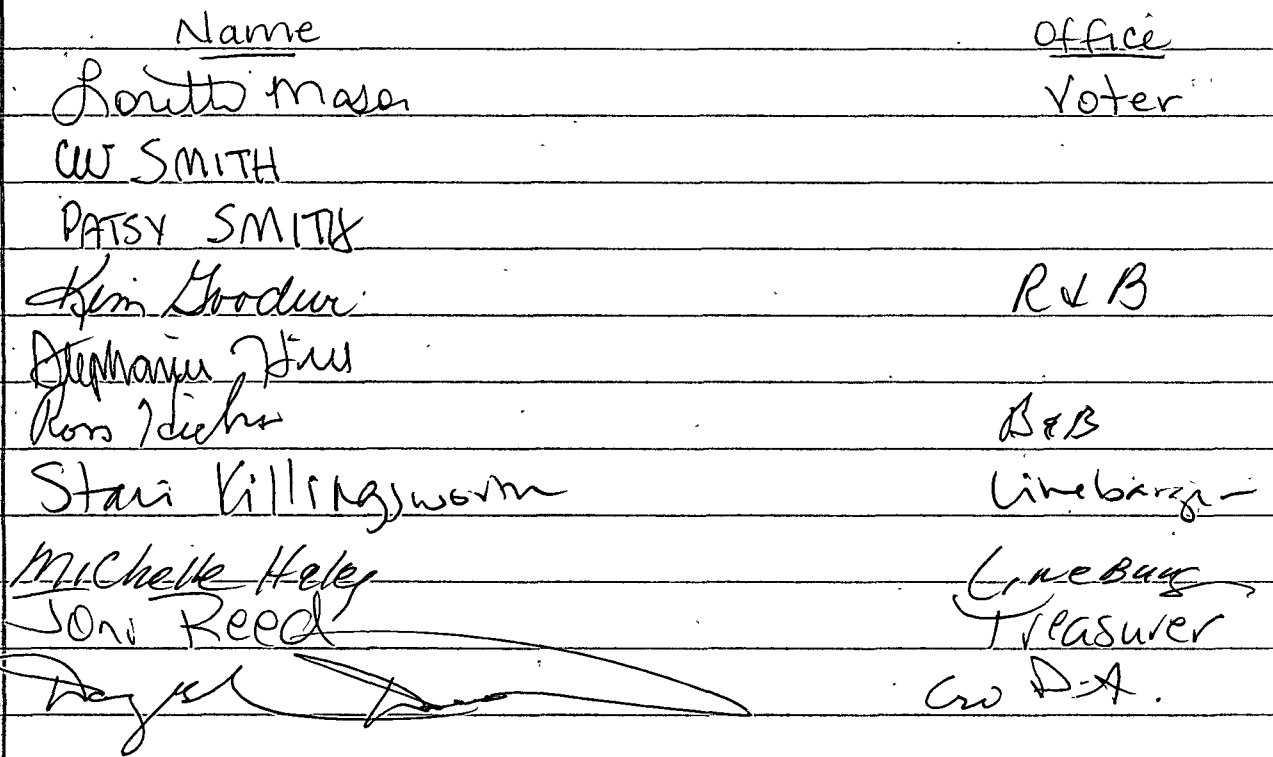 Name Office
Loretta Mason Voter
CW SMITH
PATSY SMITH
Kim Goodwin R & B
Stephanie
Ron Hicks B & B
Staci Killingsworth Linebarger
Michelle Haley LineBarg
Joni Reed Treasurer
Co D.A.